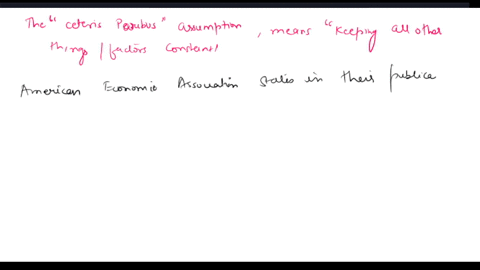 The "ceteris Paribus" assumption, means "Keeping all other
things / factors constant/
American Economic Association states in their publica